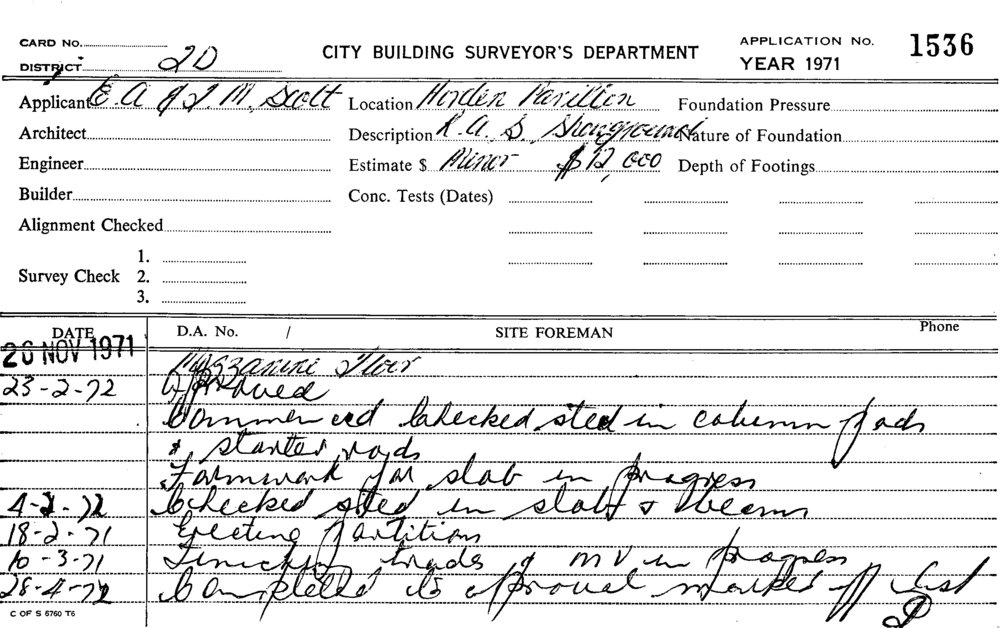 CARD No.
DISTRICT 2D
CITY BUILDING SURVEYOR'S DEPARTMENT
APPLICATION No. 1536
YEAR 1971
Applicant E. A. & T. M. Scott
Location Horden Pavillion
Foundation Pressure
Architect
Description R.A.S. Showground
Nature of Foundation
Engineer
Estimate $ Minor $12,000
Depth of Footings
Builder
Conc. Tests (Dates)
Alignment Checked
Survey Check
1.
2.
3.
DATE
D.A. No. /
SITE FOREMAN
Phone
26 NOV 1971 Mezzanine Floor
23-2-72 Approved
Commenced Checked steel in column pads
& starter rods
Formwork for slab in progress
4-2-72 Checked steel in slab & beams
18-2-71 Erecting partitions
10-3-71 Finishing trades & MV in progress
28-4-72 Completed to approval marked off list
C OF S 6760 T6